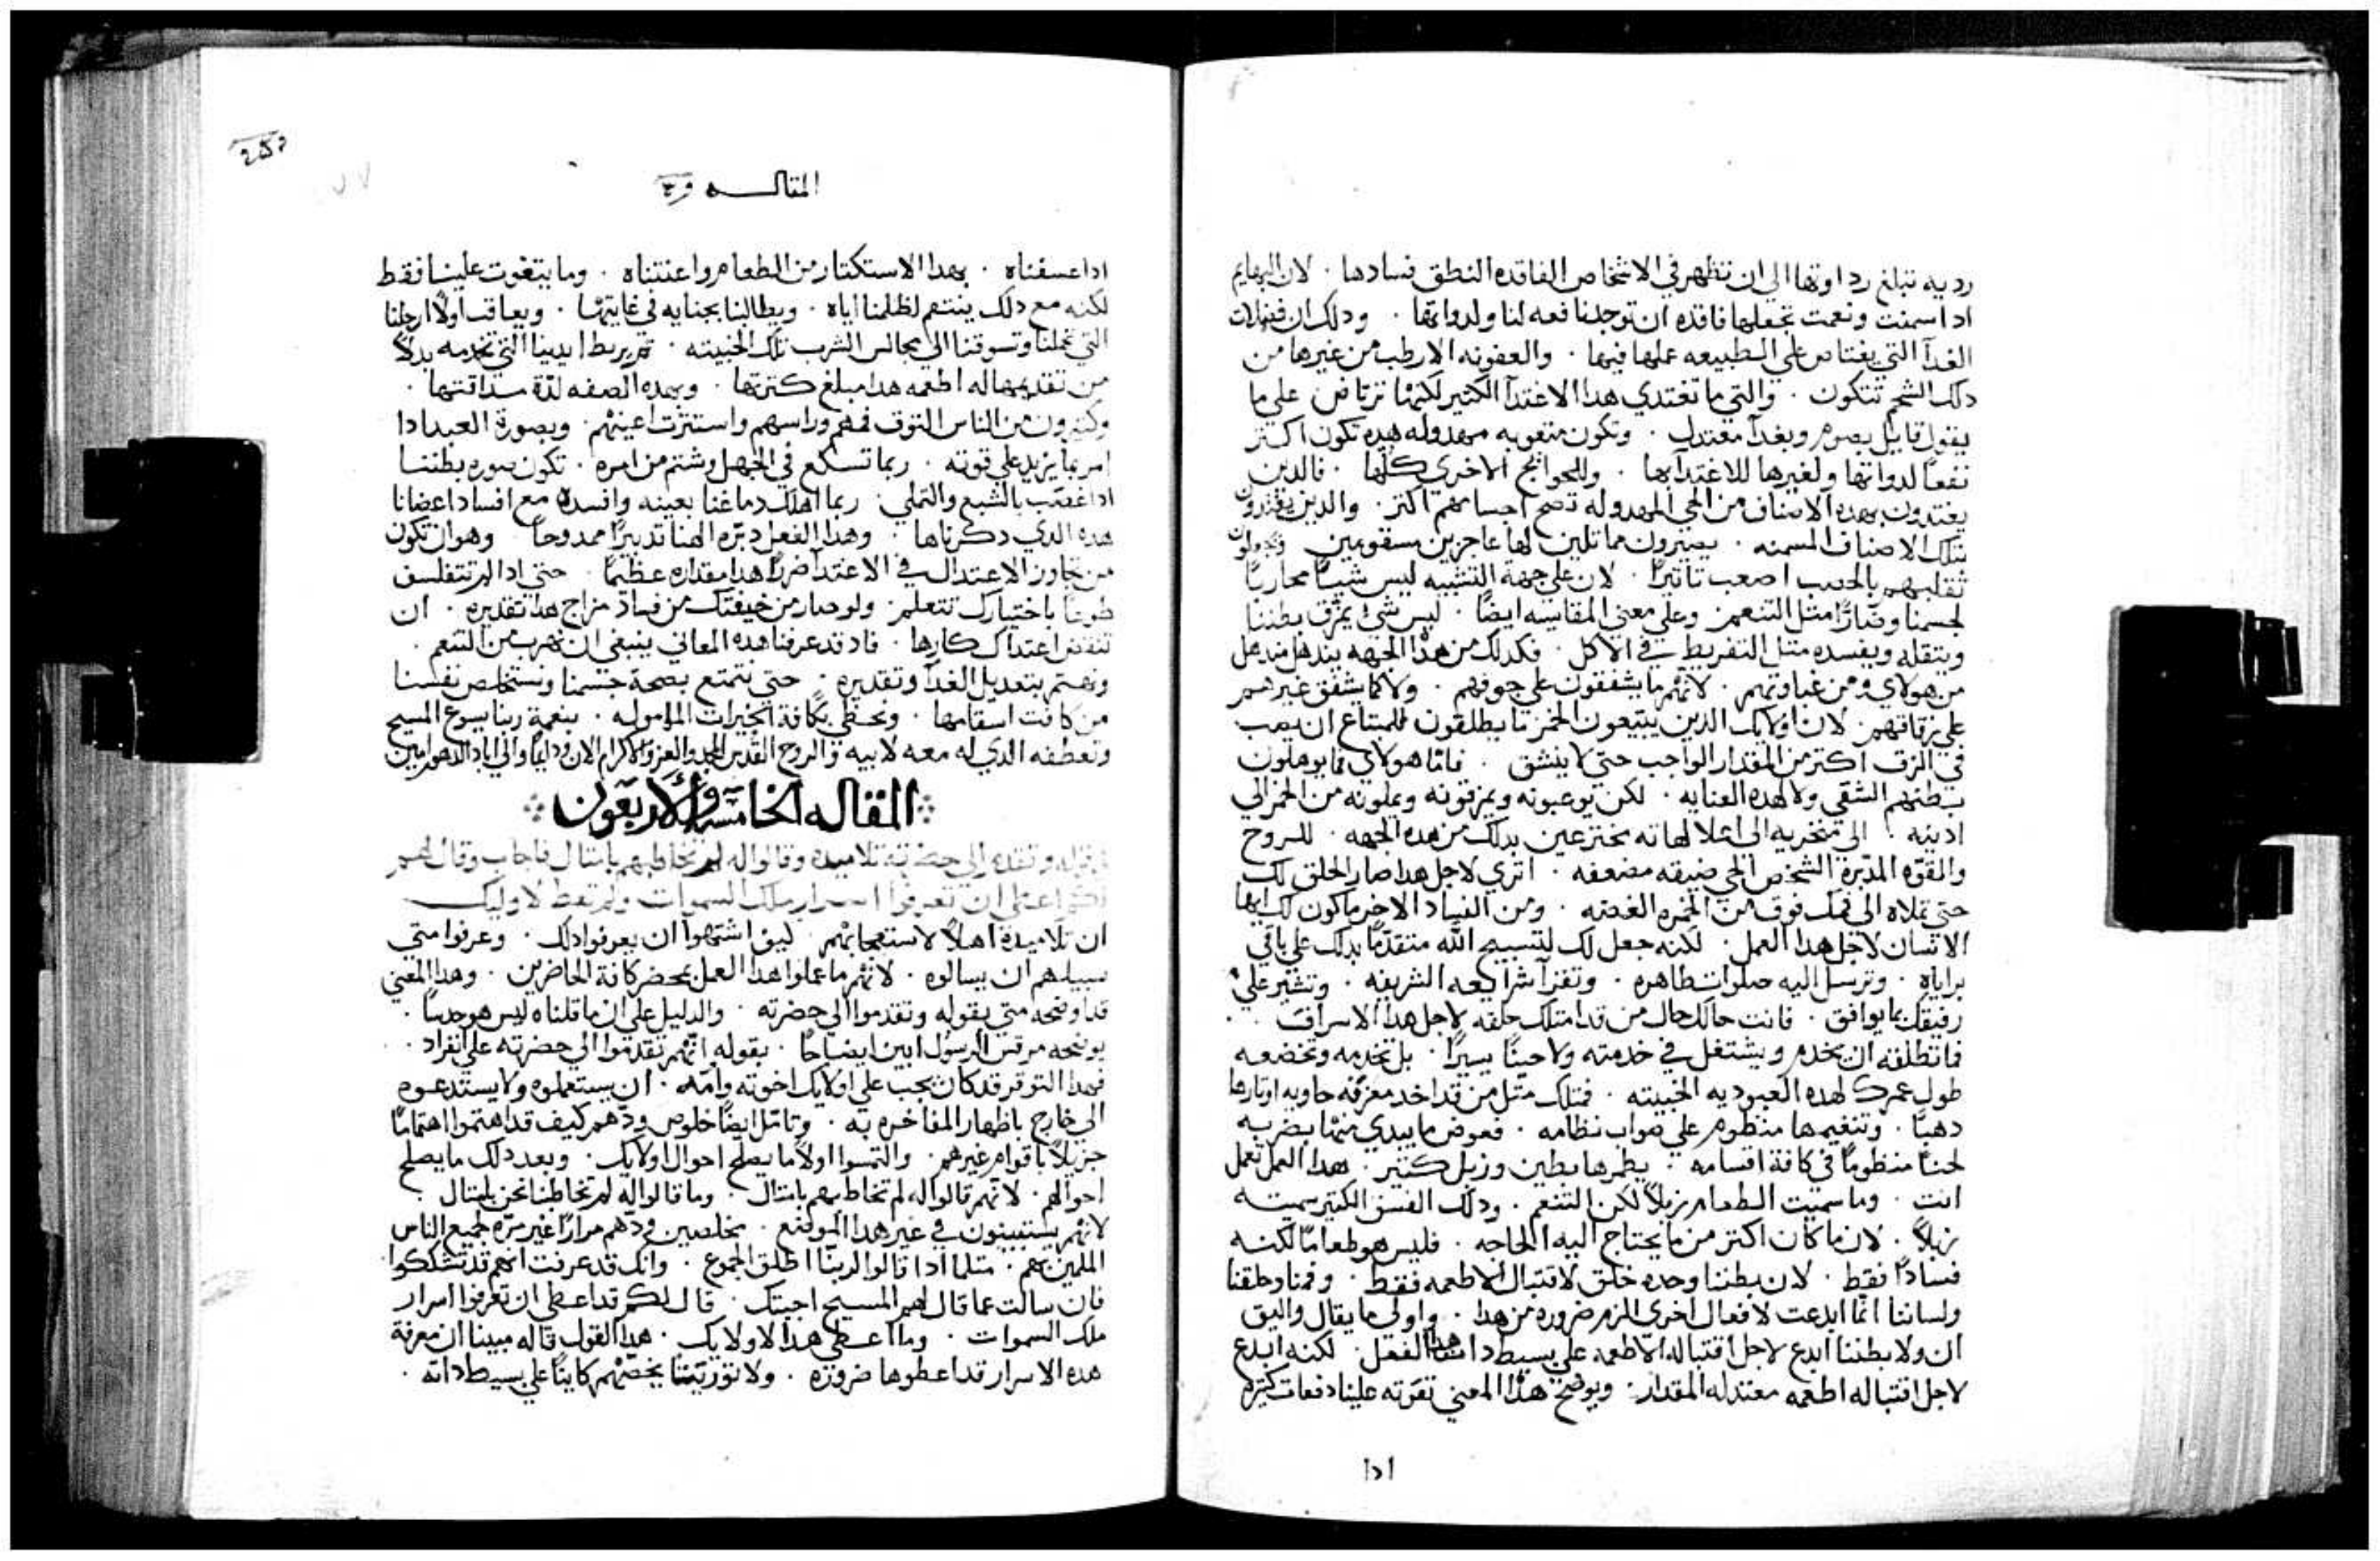 رديه تبلغ رداوتها الي ان تظهر في الاشخاص الفاقده النطق فسادها . لان البهايم
ادا سمنت ونعمت تجعلها فاقده ان توجد نافعه لنا ولدواتها . ودلك ان فضلات
الغدآ التي يعتاص علي الطبيعه عملها فيها . والعفونه الارطب من غيرها من
دلك الشحم تتكون . والتي ما تغتدي هدا الاغتدآ الكتير لكنها ترتاض علي ما
يقول قايل بصوم وبغدآ معتدل . وتكون متعوبه مهدوله هده تكون اكتر
نفعاً لدواتها ولغيرها للاغتدآ بها . وللحوايج الاخري كلها . فالدين
يغتدون بهده الاصناف من الحي المهدوله تصح اجسامهم اكتر . والدين يغتدون
بتلك الاصناف المسمنه . يصيرون مماتلين لها عاجزين مسقومين
لجسمنا وضاراً متل التنعم . وعلي معني المقايسه ايضاً . ليس شي يمزق بطننا
ويتقله ويفسده متل التفريط في الاكل . فكدلك من هدا الجهه يندهل مندهل
من هولاي ومن غباوتهم . لانهم ما يشفقون علي جوفهم . ولا كما يشفق غيرهم
علي زقاقهم . لان اولايك الدين يبتيعون الخمر ما يطلقون للمبتاع ان يصب
في الزق اكتر من المقدار الواجب حتي لا ينشق . فاما هولاي فما يوهلون
بطنهم الشقي ولا لهده العنايه . لكن يوعبونه ويمزقونه ويملونه من الخمر الي
ادينه . الي منخريه الي اعلا لهاته مخترعين بدلك من هده الجهه . للروح
والقوه المدبره الشخص الحي ضيقه مضعفه . اتري لاجل هدا صار الحلق لك
حتي تملاه الي فمك فوق من الخمره الغضنه . ومن الفساد الاخر ماكون لك ايها
الانسان لاجل هدا العمل . لكنه جعل لك لتسبح الله متقدماً بدلك علي باقي
براياه . وترسل اليه صلوات طاهره . وتقرآ شرايعه الشريفه . وتشير علي
رفيقك بما يوافق . فانت حالك حال من قد امتلك حلقه لاجل هدا الاسراف .
فما تطلقه ان يخدم ويشتغل في خدمته ولا حيناً يسيراً . بل تخدمه وتخضعه
طول عمرك لهده العبوديه الخبيته . فمتلك متل من قد اخد معزفه حاويه اوتارها
دهباً . وتنغيمها منظوم علي صواب نظامه . فعوض ما يبدي منها بضربه
لحناً منظوماً في كافة اقسامه . يطمرها بطين وزبل كتير . هدا العمل تعمل
انت . وما سميت الطعام زبلاً لكن التنعم . ودلك الفسق الكتير سميته
زبلاً . لان ما كان اكتر من ما يحتاج اليه الحاجه . فليس هو طعاماً لكنه
فساداً فقط . لان بطننا وحده خلق لاقتبال الاطعمه فقط . وفمنا وحلقنا
ولساننا انما ابدعت لافعال اخري الزم ضروره من هدا . واولي ما يقال واليق
ان ولا بطننا ابدع لاجل اقتباله الاطعمه علي بسيط دات هدا الفعل . لكنه ابدع
لاجل اقتباله اطعمه معتدله المقدار . ويوضح هدا المعني تفوته علينا دفعات كتيره
ادا
المقاله
ادا عسفناه . بهدا الاستكتار من الطعام واعنتناه . وما يتغوت علينا فقط
لكنه مع دلك ينتقم لظلمنا اياه . ويطالبنا بجنايه في غايتها . ويعاقب اولاً ارجلنا
التي تحملنا وتسوقنا الي مجالس الشرب تلك الخبيته . تم يربط ايدينا التي تخدمه بدلاً
من تقديمها له اطعمه هدا مبلغ كترتها . وبهده الصفه لدة مداقتها .
وكتيرون من الناس التوف فمهم وراسهم واستنترت اعينهم . وبصورة العبد ادا
امر بما يزيد علي قوته . ربما تسكع في الجهل وشتم من امره . تكون صوره بطننا
ادا غصب بالشبع والتملي . ربما اهلك دماغنا بعينه وافسده مع افساد اعضانا
هده الدي دكرناها . وهدا الفعل دبره الهنا تدبيراً ممدوحاً وهو ان تكون
من تجاوز الاعتدال في الاغتدآ ضرراً هدا مقداره عظيماً . حتي ادا لم تتفلسف
طوعاً باختيارك تتعلم . ولو صار من خيفتك من فساد مزاج هدا تقديره . ان
تنقض اعتداك كارها . فاد قد عرفنا هده المعاني ينبغي ان نهرب من التنعم .
ونهتم بتعديل الغدآ وتقديره . حتي نتمتع بصحة جسمنا ونستخلص نفسنا
من كافت اسقامها . ونحظي بكافة الخيرات المامولـه . بنعمة ربنا يسوع المسيح
وتعطفه الدي له معه لابيه والروح القدس المجد والعز والاكرام الان ودايماً والي اباد الدهور امين
المقاله الخامسه والاربعون
وتقدم الي حضرته تلاميده وقالوا له لم تخاطبهم بامتال فاجاب وقال لهم
لكم اعطي ان تعرفوا اسرار ملك السموات ولم تعط لاوليك
ان تلاميده اهلاً لاستعجابهم . كيف اشتهوا ان يعرفوا دلك . وعرفوا متي
سبيلهم ان يسالوه . لانهم ما عملوا هدا العمل بمحضر كافة الحاضرين . وهدا المعني
قد اوضحه متي بقوله وتقدموا الي حضرته . والدليل علي ان ما قلناه ليس هو حدساً .
يوضحه مرقس الرسول ابين ايضاحاً . بقوله انهم تقدموا الي حضرته علي انفراد .
فهدا التوقر قد كان يجب علي اولايك اخوته وامه . ان يستعملوه ولا يستدعوه
الي خارج باظهار المفاخره به . وتامل ايضاً خلوص ودهم كيف قد اهتموا اهتماماً
جزيلاً باقوام غيرهم . والتمسوا اولاً ما يصلح احوال اولايك . وبعد دلك ما يصلح
احوالهم . لانهم قالوا له لم تخاطبهم بامتال . وما قالوا له لم تخاطبنا نحن بامتال .
لانهم يستبينون في غير هدا الموضع . مخلصين ودهم مراراً غير مره لجميع الناس
الملمين بهم . متلما ادا قالوا لربنا اطلق الجموع . وانك قد عرفت انهم قد تشككوا
فان سالت عما قال لهم المسيح اجبتك . قال لكم قد اعطي ان تعرفوا اسرار
ملك السموات . وما اعطي هدا لاولايك . هدا القول قاله مبينا ان معرفة
هده الاسرار قد اعطوها ضروره . ولا توريتنا يخصهم كاينا علي بسيط داته .